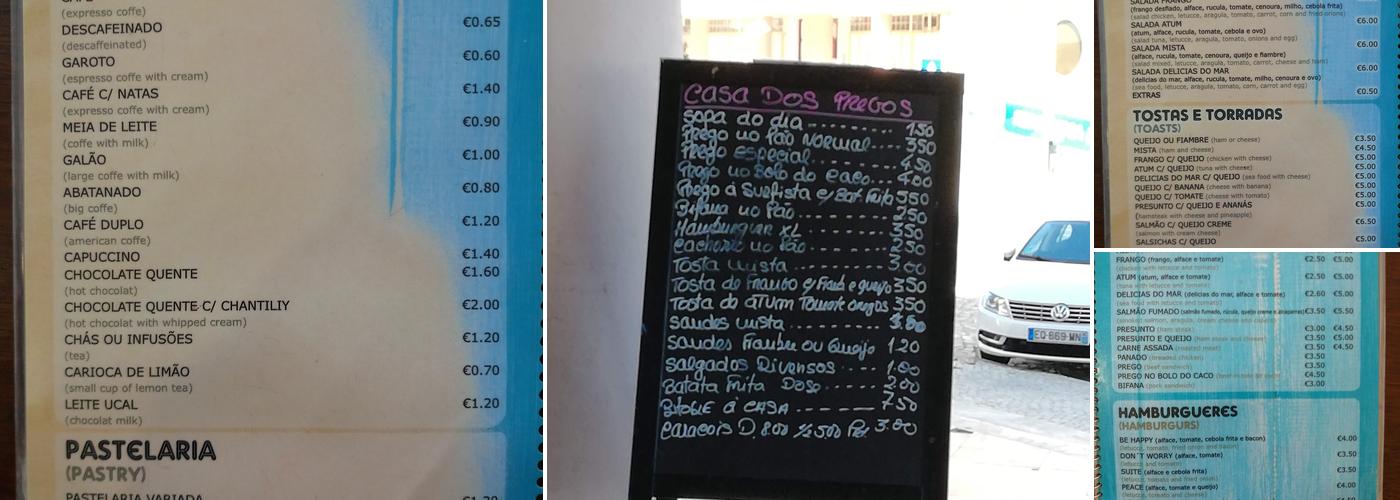 (expresso coffe)
€0.65
DESCAFEINADO
(descaffeinated)
€0.60
GAROTO
(espresso coffe with cream)
€1.40
CAFÉ C/ NATAS
(expresso coffe with cream)
€0.90
MEIA DE LEITE
(coffe with milk)
€1.00
GALÃO
(large coffe with milk)
€0.80
ABATANADO
(big coffe)
€1.20
CAFÉ DUPLO
(american coffe)
CAPUCCINO €1.40
CHOCOLATE QUENTE €1.60
(hot chocolat)
CHOCOLATE QUENTE C/ CHANTILIY €2.00
(hot chocolat with whipped cream)
CHÁS OU INFUSÕES €1.20
(tea)
CARIOCA DE LIMÃO €0.70
(small cup of lemon tea)
LEITE UCAL €1.20
(chocolat milk)
PASTELARIA
(PASTRY)
PASTELARIA VARIADA
CASA DOS PREGOS
Sopa do dia 150
Prego no Pão Normal 350
Prego Especial 450
Prego no Bolo do Caco 400
Prego á Surfista c/ Bat. Frita 550
Bifana no Pão 250
Hamburguer XL 350
Cachorro no Pão 250
Tosta Mista 3.00
Tosta de Frango c/ Fiamb e queijo 350
Tosta de ATUM Tomate oregos 350
Sandes Mista
Sandes Fiambre ou Queijo 120
Salgados Diversos 1.00
Batata Frita Dose 200
Bitoque á CASA 750
Caracois D. 800 ½ 500 Pr. 3.00
(frango desfiado, alface, rucula, tomate, cenoura, milho, cebola frita)
(salad chicken, letucce, aragula, tomato, carrot, corn and fried onions)
SALADA ATUM €6.00
(atum, alface, rucula, tomate, cebola e ovo)
(salad tuna, letucce, aragula, tomato, onions and egg)
SALADA MISTA €6.00
(alface, rucula, tomate, cenoura, queijo e fiambre)
(salad mixed, letucce, aragula, tomato, carrot, cheese and ham)
SALADA DELICIAS DO MAR €6.00
(delicias do mar, alface, rucula, tomate, milho, cenoura e ovo)
(sea food, letucce, aragula, tomato, corn, carrot and egg)
EXTRAS €0.50
TOSTAS E TORRADAS
(TOASTS)
QUEIJO OU FIAMBRE (ham or cheese) €3.50
MISTA (ham and cheese) €4.50
FRANGO C/ QUEIJO (chicken with cheese) €5.00
ATUM C/ QUEIJO (tuna with cheese) €5.00
DELICIAS DO MAR C/ QUEIJO (sea food with cheese) €5.00
QUEIJO C/ BANANA (cheese with banana) €5.00
QUEIJO C/ TOMATE (cheese with tomato) €5.00
PRESUNTO C/ QUEIJO E ANANÁS €5.00
(hamsteak with cheese and pineapple)
SALMÃO C/ QUEIJO CREME €6.50
(salmon with cream cheese)
SALSICHAS C/ QUEIJO €5.00
FRANGO (frango, alface e tomate) €2.50 €5.00
(chicken with letucce and tomato)
ATUM (atum, alface e tomate) €2.50
(tuna with letucce and tomato)
DELICIAS DO MAR (delicias do mar, alface e tomate) €2.60 €5.00
(sea food with letucce and tomato)
SALMÃO FUMADO €3.50 €5.50
PRESUNTO (ham steak) €3.00 €4.50
PRESUNTO E QUEIJO (ham steak and cheese) €3.50 €5.00
CARNE ASSADA (roasted meat) €3.50 €4.50
PANADO (breaded chicken) €3.50
PREGO (beef sandwich) €3.50
PREGO NO BOLO DO CACO €4.50
BIFANA (pork sandwich) €3.00
HAMBURGUERES
(HAMBURGURS)
BE HAPPY (alface, tomate, cebola frita e bacon) €4.00
(letucce, tomato, fried onion and bacon)
DON´T WORRY (alface, tomate) €3.50
(letucce and tomato)
SUITE (alface e cebola frita) €3.50
PEACE (alface, tomate e queijo) €4.00
(letucce, tomato and cheese)